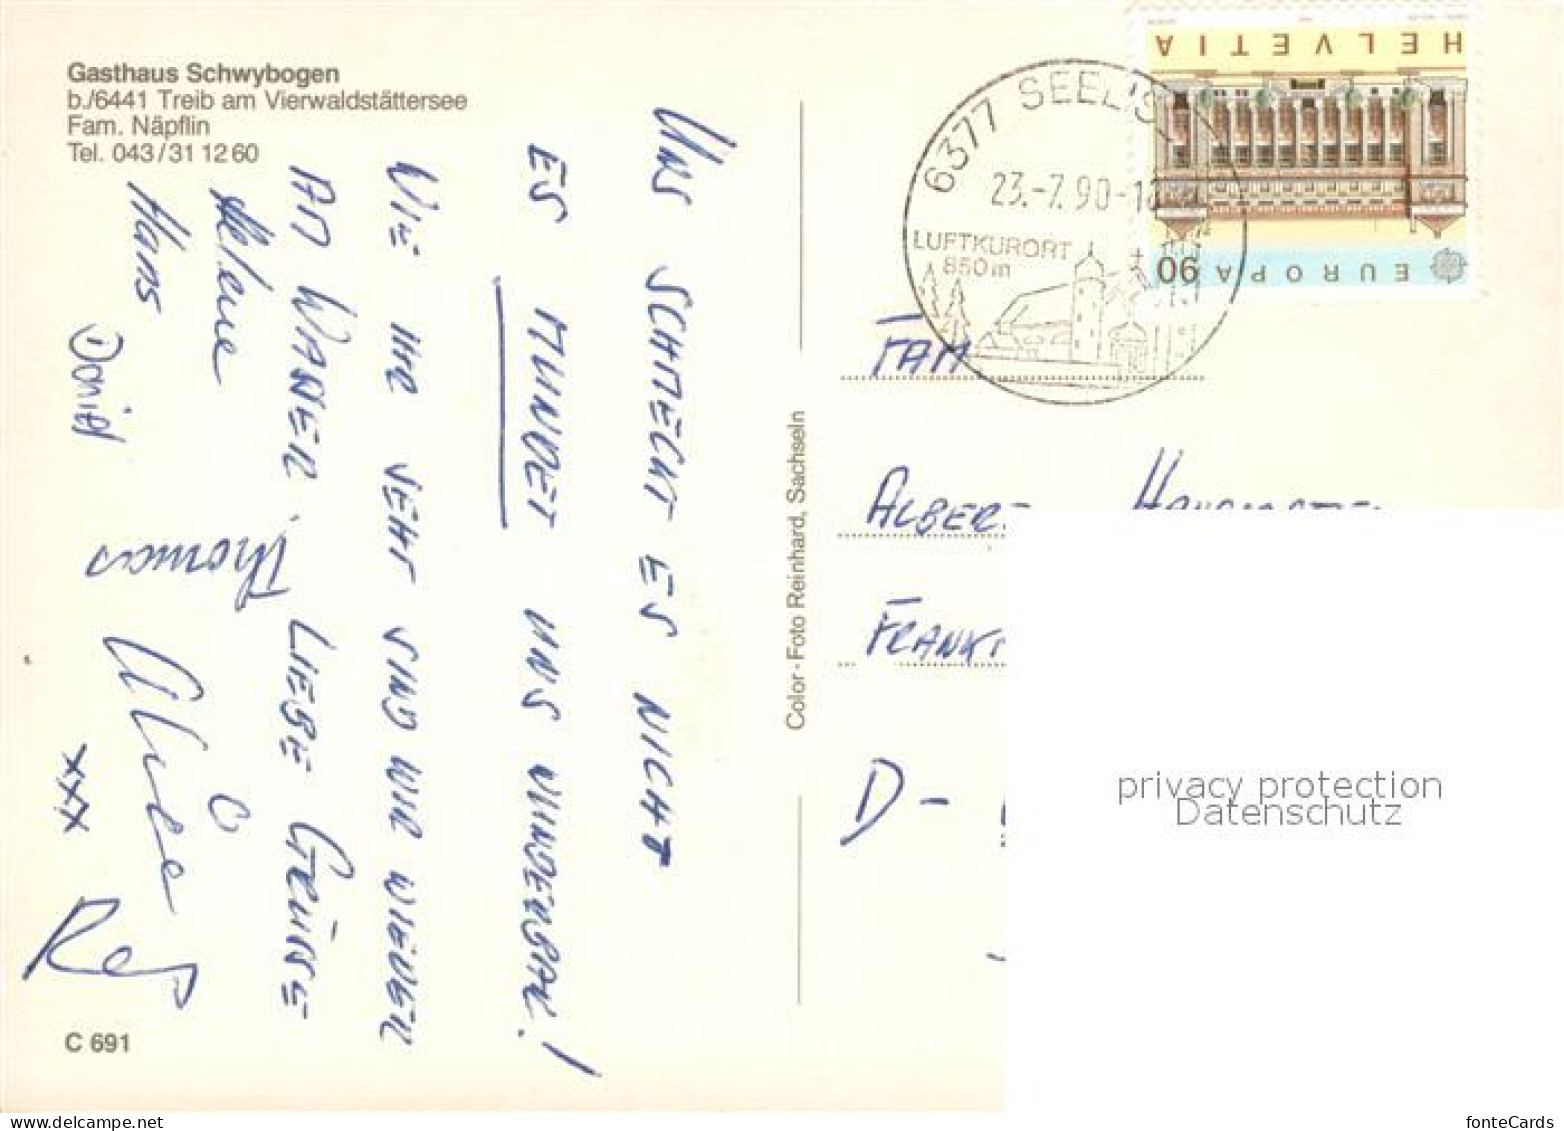 Gasthaus Schwybogen
b./6441 Treib am Vierwaldstättersee
Fam. Näpflin
Tel. 043/31 12 60
UNS SCHMECKT ES NICHT
ES MUNDET UNS WUNDERBAR!
WIE IHR SEHT SIND WIR WIEDER
AM WASSER. LIEBE GRÜSSE
Helene
Hans
Daniel
Thomas
xxx
C 691
Color - Foto Reinhard, Sachseln
HELVETIA
EUROPA
90
6377 SEELIS
23.-7.90-1
LUFTKURORT
850m
FAM
ALBER
FRANK
D-
privacy protection
Datenschutz
fonteCards